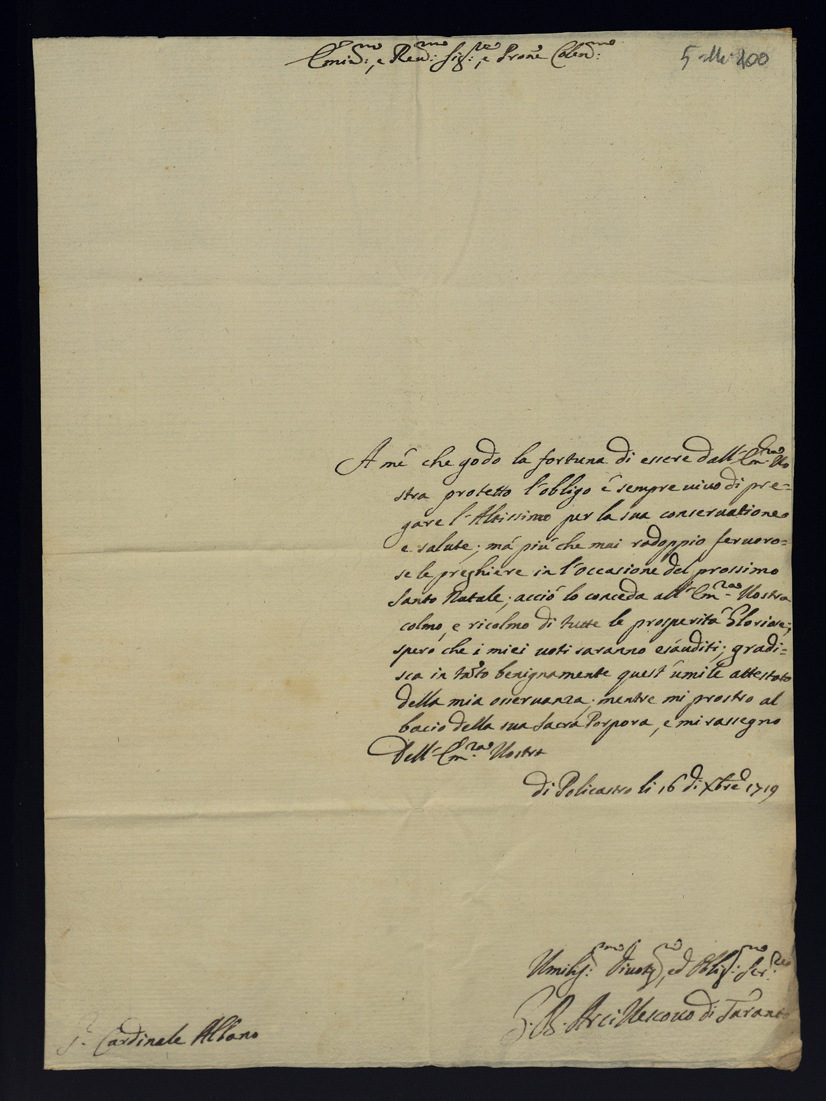 Emin.mo, e Reu.mo Sig.re, e Prone Colen.mo
A mé che godo la fortuna di essere dall' Em.za Uo
stra protetto l'obligo é sempre uiuo di pre=
gare l'Altissimo per la sua conseruatione
e salute; má piú che mai radoppio feruoro=
se le preghiere in l'occasione del prossimo
Santo Natale; acció lo conceda all' Em.za Uostra
colmo, e ricolmo di tutte le prosperitá Gloriose;
speró che i miei uoti saranno esáuditi; gradi=
sca in tanto benignamente quest' úmile attestato
della mia osseruanza; mentre mi prostro al
bacio della sua Sacra Porpora, e mi rassegno
Dell' Em.za Uostra
di Policastro li 16 di Xbre 1719
Umilis.mo Diuotis.mo, ed Oblig.mo Ser.re
G. B. ArciUescouo di Taranto
S.r Cardinale Albano